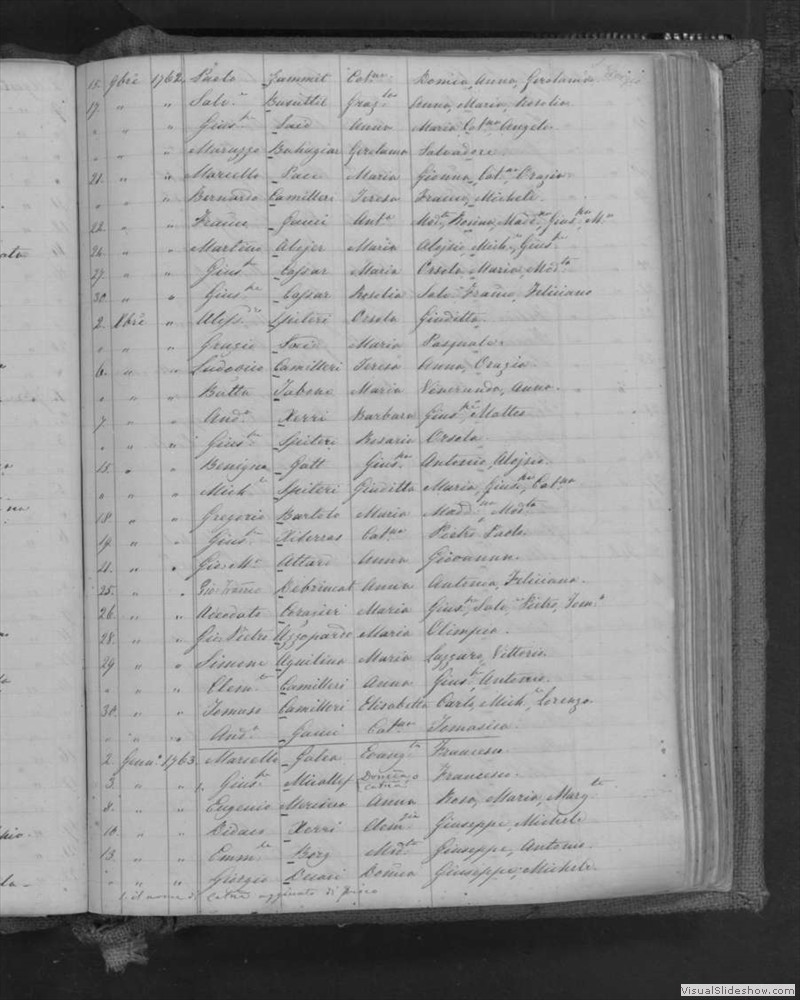 15. 9bre 1762 Paolo Zammit Cat.na Domca, Anna, Gerolama
17. " " Salv.e Busuttil Graz.la Anna, Maria, Rosolia
" " " Gius.e Said Anna Maria, Cat.na Angelo
" " " Maruzzo Buhagiar Gerolama Salvadore
21. " " Marcello Pace Maria Gionna, Cat.na Orazio
" " Bernardo Camilleri Teresa Franco, Michele
22. " " Franco Gauci Ant.a
26. " " Martino Alejer Maria Alojsio, Mich.e, Gius.e
27. " " Gius.e Cassar Maria Orsola, Maria, Mod.ta
30. " " Gius.e Cassar Rosolia Salv.e Franco, Feliciano
2. Xbre " Aless.o Spiteri Orsola Giuditta
" " " Grazio Said Maria Pasquale
6. " " Ludovico Camilleri Teresa Anna, Orazio
" " " Batta Tabone Maria Veneranda, Anna
7. " " And.a Xerri Barbara Gius.e Matteo
" " " Gius.e Spiteri Rosaria Orsola
15. " " Benigno Gatt Gius.pa Antonio, Alojsio
" " " Mich.e Spiteri Giuditta Maria, Gius.pa, Cat.na
18. " " Gregorio Bartolo Maria Madd.na Mod.ta
19. " " Gius.e Xiberras Cat.na Pietro Paolo
21. " " Gio: M.a Attard Anna Giovanna
25. " " Gio Franco Debrincat Anna Antonia, Feliciana
26. " " Adeodato Maria Gius.e, Salv.e Pietro, Tom.o
28. " " Gio: Pietro Azzopardo Maria Olimpia
29 " " Simone Aquilina Maria Lazzaro, Vittorio
" " " Camilleri Anna Gius.e Antonio
30. " " Tomaso Camilleri Elisabetta Carlo, Mich.e Lorenzo
" " " And.a Gauci Cat.na Tomasica
2. Gen.o 1763 Marcello Galea Evang.ta Francesco
3. " " 1. Gius.e Micallef Domca o Catna Francesco
8. " " Eugenio Anna Rosa, Maria, Marg.ta
10. " " Didaco Xerri Clem.zia Giuseppe, Michele
13. " " Emm.le Borg Mod.ta Giuseppe, Antonio
" " " Giorgio Domca Giuseppe, Michele
1. il nome di Catna aggiunto di
VisualSlideshow.com